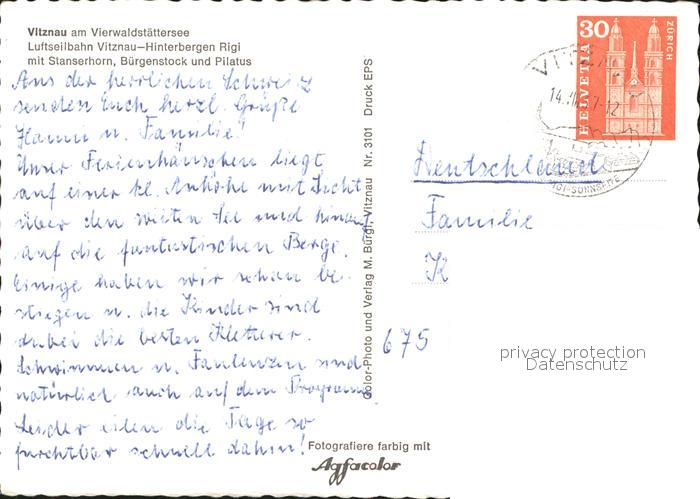 Vitznau am Vierwaldstättersee
Luftseilbahn Vitznau—Hinterbergen Rigi
mit Stanserhorn, Bürgenstock und Pilatus
Aus der herrlichen Schweiz
senden Euch herzl. Grüße
Hanni u. Familie!
Unser Ferienhäuschen liegt
auf einer kl. Anhöhe mit Sicht
über den weiten See und hinauf
auf die fantastischen Berge.
Einige haben wir schon be-
stiegen u. die Kinder sind
dabei die besten Kletterer.
Schwimmen u. Faulenzen sind
natürlich auch auf dem Programm
Leider eilen die Tage so
furchtbar schnell dahin!
Color-Photo und Verlag M. Bürgi, Vitznau Nr. 3101 Druck EPS
Fotografiere farbig mit
Agfacolor
30
HELVETIA
ZÜRICH
VITZNAU
Deutschland
Familie
K
675
privacy protection
Datenschutz